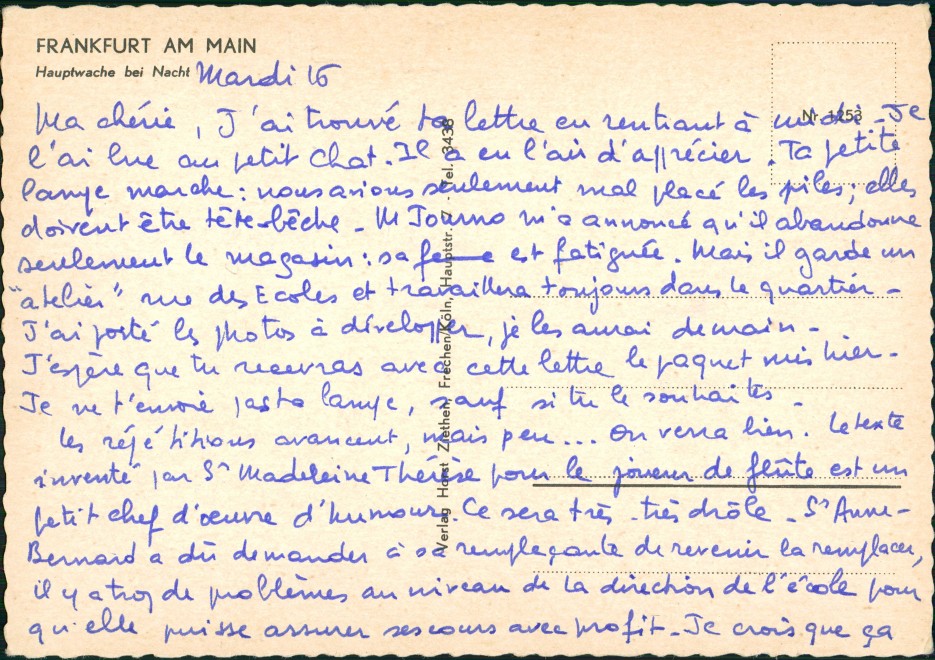 FRANKFURT AM MAIN
Hauptwache bei Nacht Mardi 16
Nr. 1253
Ma chérie, J'ai trouvé ta lettre en rentrant à midi - Je
l'ai lue au petit chat. Il a eu l'air d'apprécier. Ta petite
lampe marche : nous avions seulement mal placé les piles; elles
doivent être tête-bêche - M m'a annoncé qu'il abandonne
seulement le magasin : sa femme est fatiguée. Mais il garde un
"atelier" rue des Ecoles et travaillera toujours dans le quartier -
J'ai porté les photos à développer, je les aurai demain -
J'espère que tu recevras avec cette lettre le paquet mis hier -
Je ne t'envoie pas ta lampe, sauf si tu le souhaites -
Les répétitions avancent, mais peu... on verra bien. Le texte
inventé par Sr Madeleine Thérèse pour le joueur de flûte est un
petit chef d'œuvre d'humour. Ce sera très très drôle - Sr Anne-
Bernard a dû demander à sa remplaçante de revenir la remplacer,
il y a trop de problèmes au niveau de la direction de l'école pour
qu'elle puisse assurer ses cours avec profit - Je crois que ça
Verlag Horst Ziethen, Frechen/Köln, Hauptstr. 7 · Tel. 3438